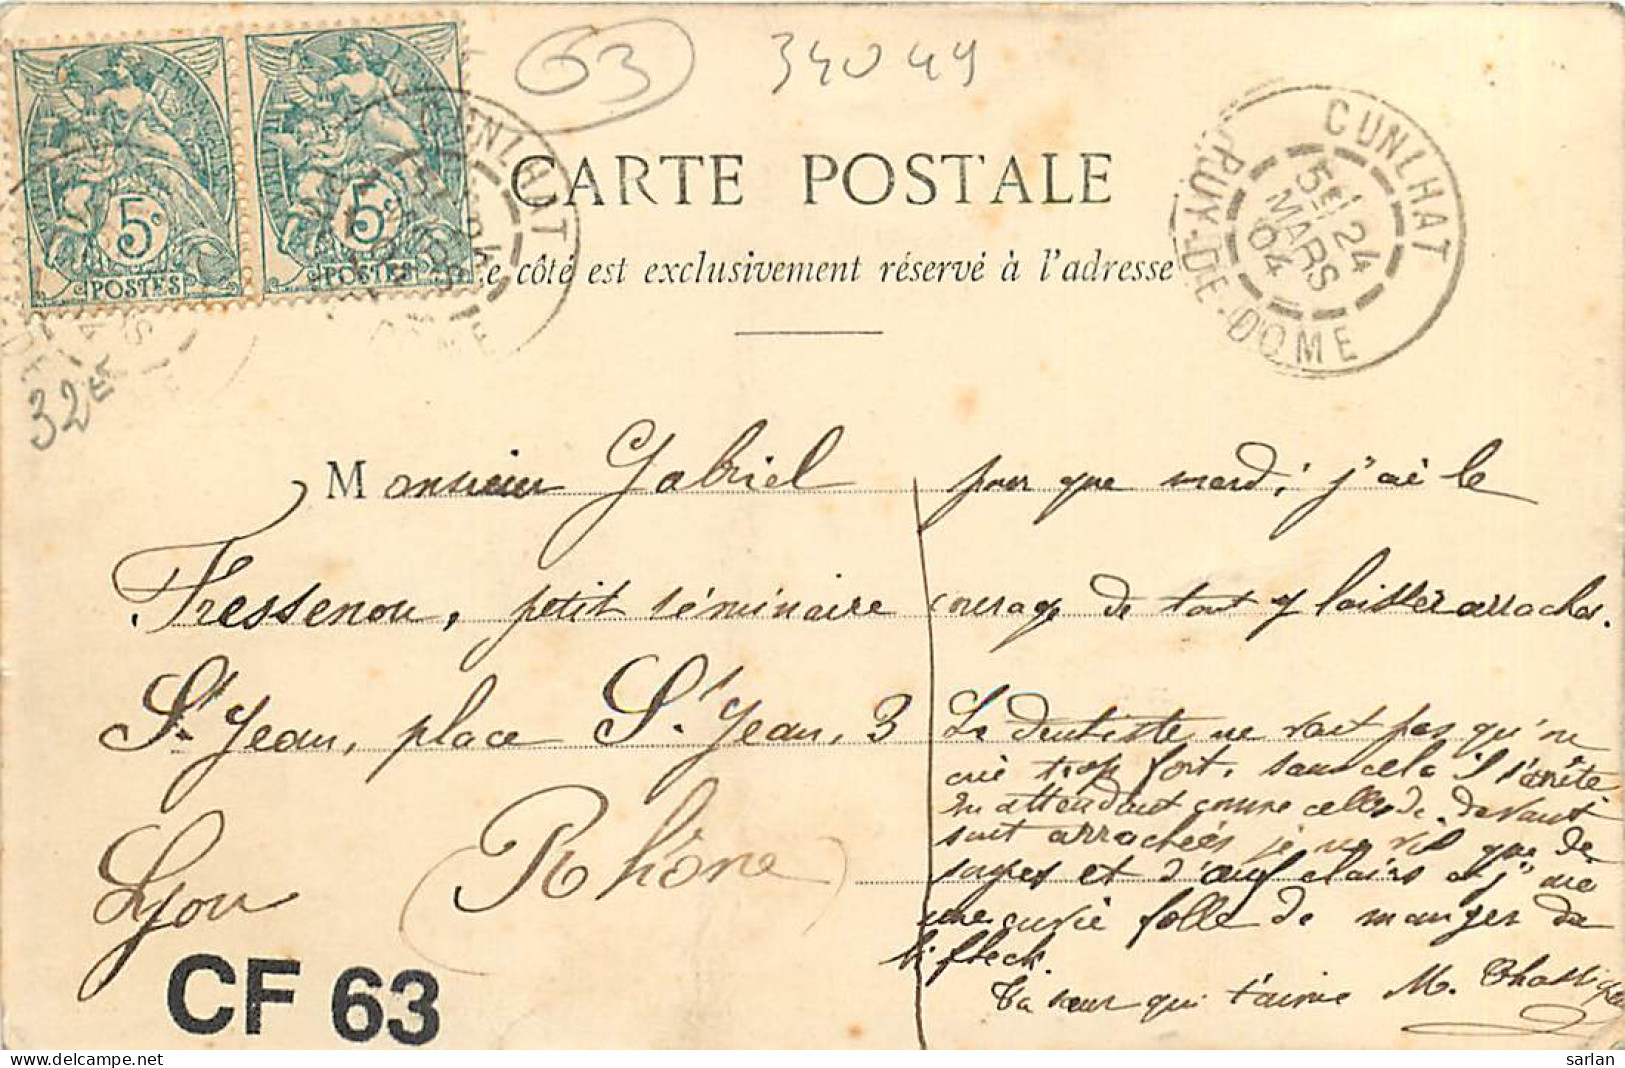 63
34049
5c
POSTES
5c
POSTES
CUNLHAT
CUNLHAT
5E 24
MARS
04
PUY-DE-DOME
CARTE POSTALE
e côté est exclusivement réservé à l'adresse
32
Monsieur Gabriel
Fressenon, petit séminaire
St Jean, place St Jean, 3
Lyon (Rhône)
pour que mardi j'ai le
courage de tout y laisser arracher.
Le dentiste ne veut pas qu'on
crie trop fort, sans cela il s'arrête
En attendant comme celles de devant
sont arrachées je ne vis que de
soupes et d'œufs clairs et j'ai
une envie folle de manger du
bifteck.
Ta sœur qui t'aime M.
CF 63
sarlan